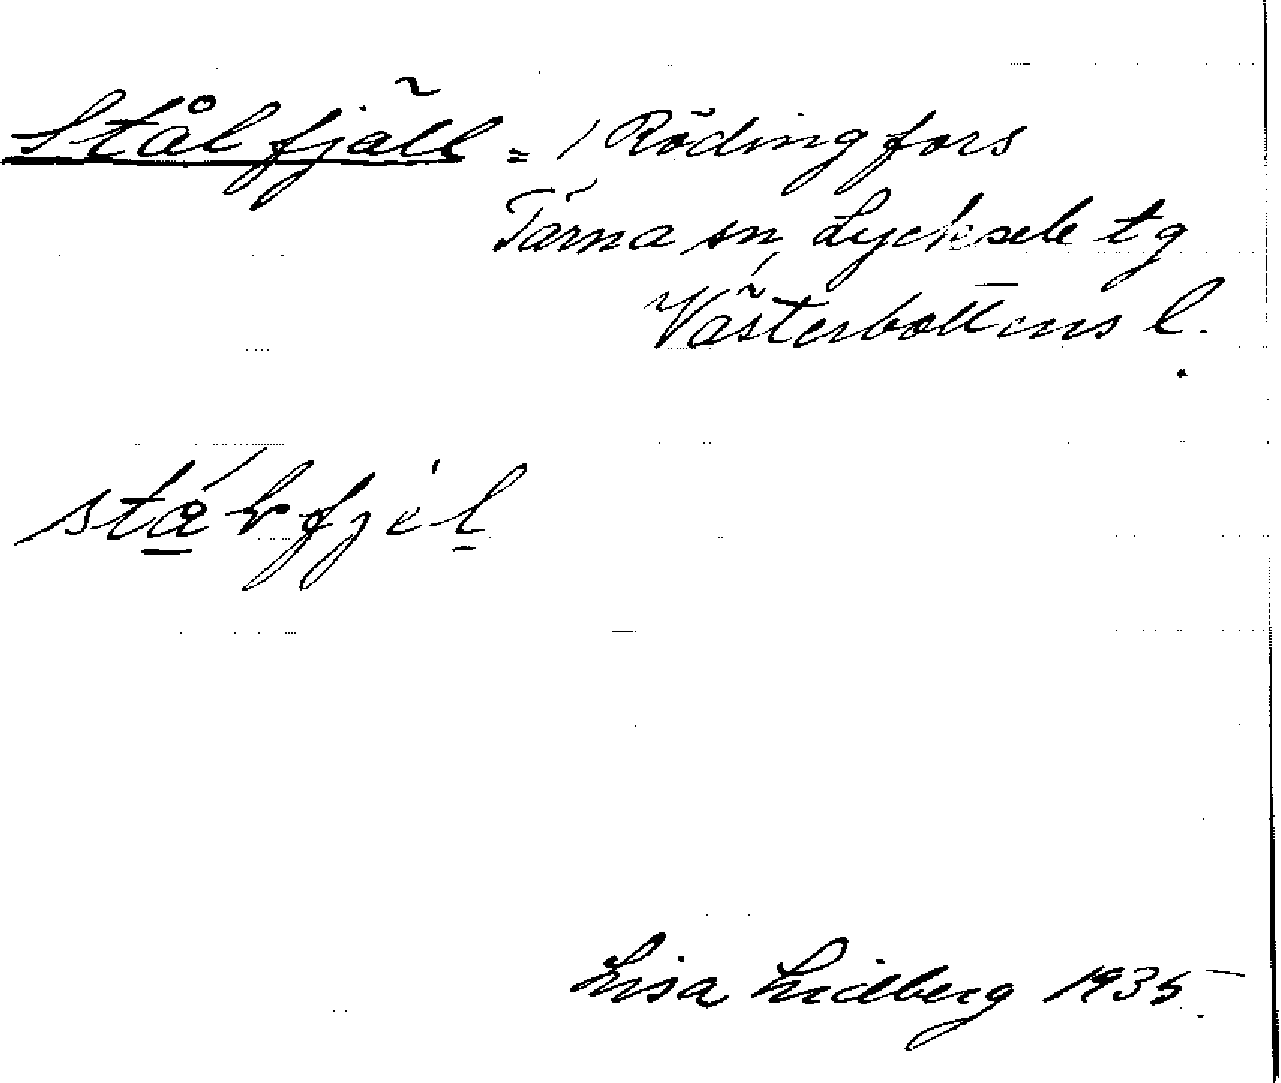 Stålfjäll = / Rödingfors
Tärna sn, Lycksele tg
Västerbottens l.
Lisa Lidberg 1935